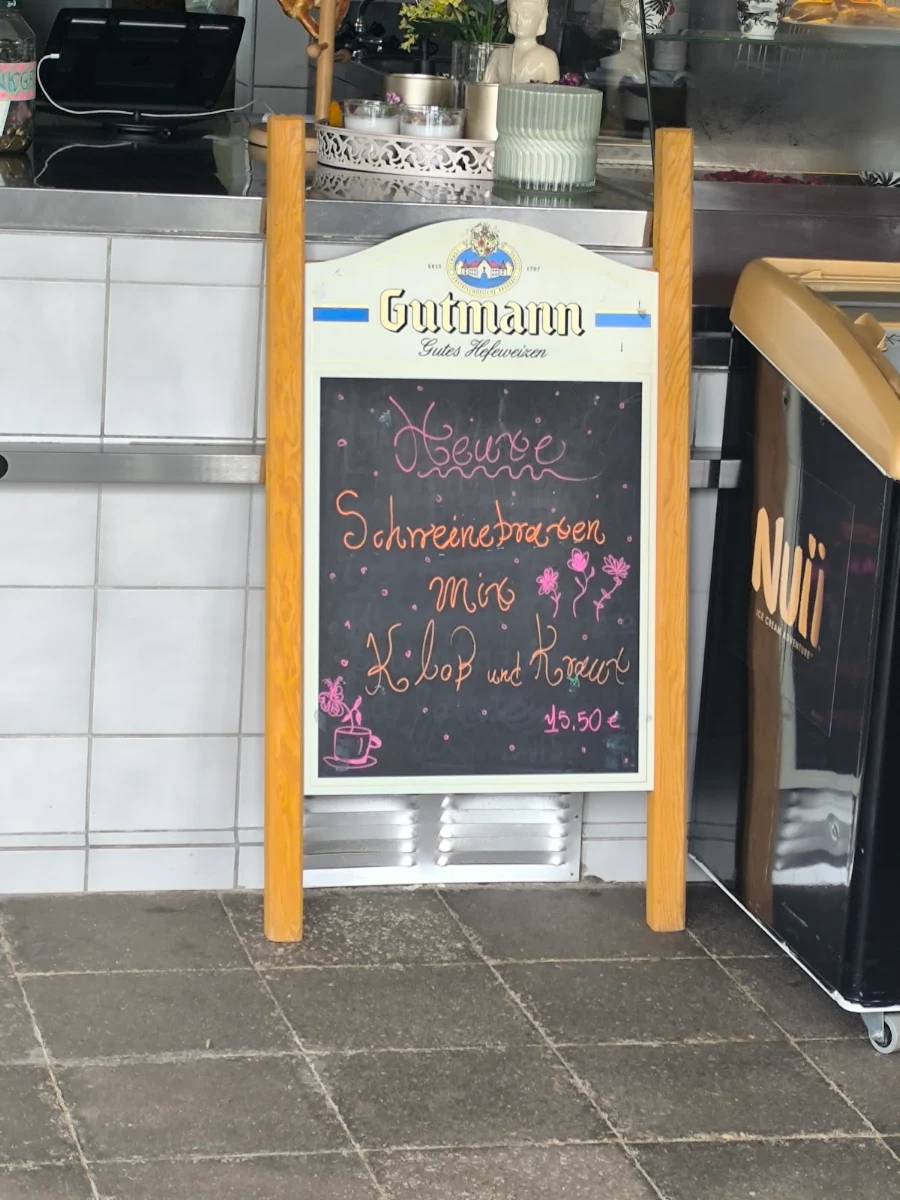 SEIT 1707
Gutmann
Gutes Hefeweizen
Heute
Schweinebraten
mit
Kloß und Kraut
15,50 €
Nuii
ICE CREAM ADVENTURE